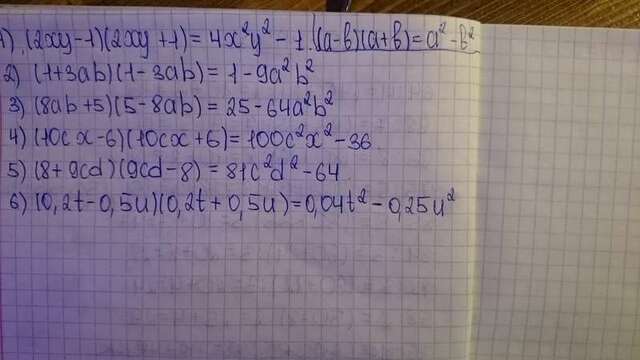 1) (2xy-1)(2xy+1)=4x²y²-1. (a-b)(a+b)=a²-b²
2) (1+3ab)(1-3ab)=1-9a²b²
3) (8ab+5)(5-8ab)=25-64a²b²
4) (10cx-6)(10cx+6)=100c²x²-36
5) (8+9cd)(9cd-8)=81c²d²-64
6) (0,2t-0,5u)(0,2t+0,5u)=0,04t²-0,25u²